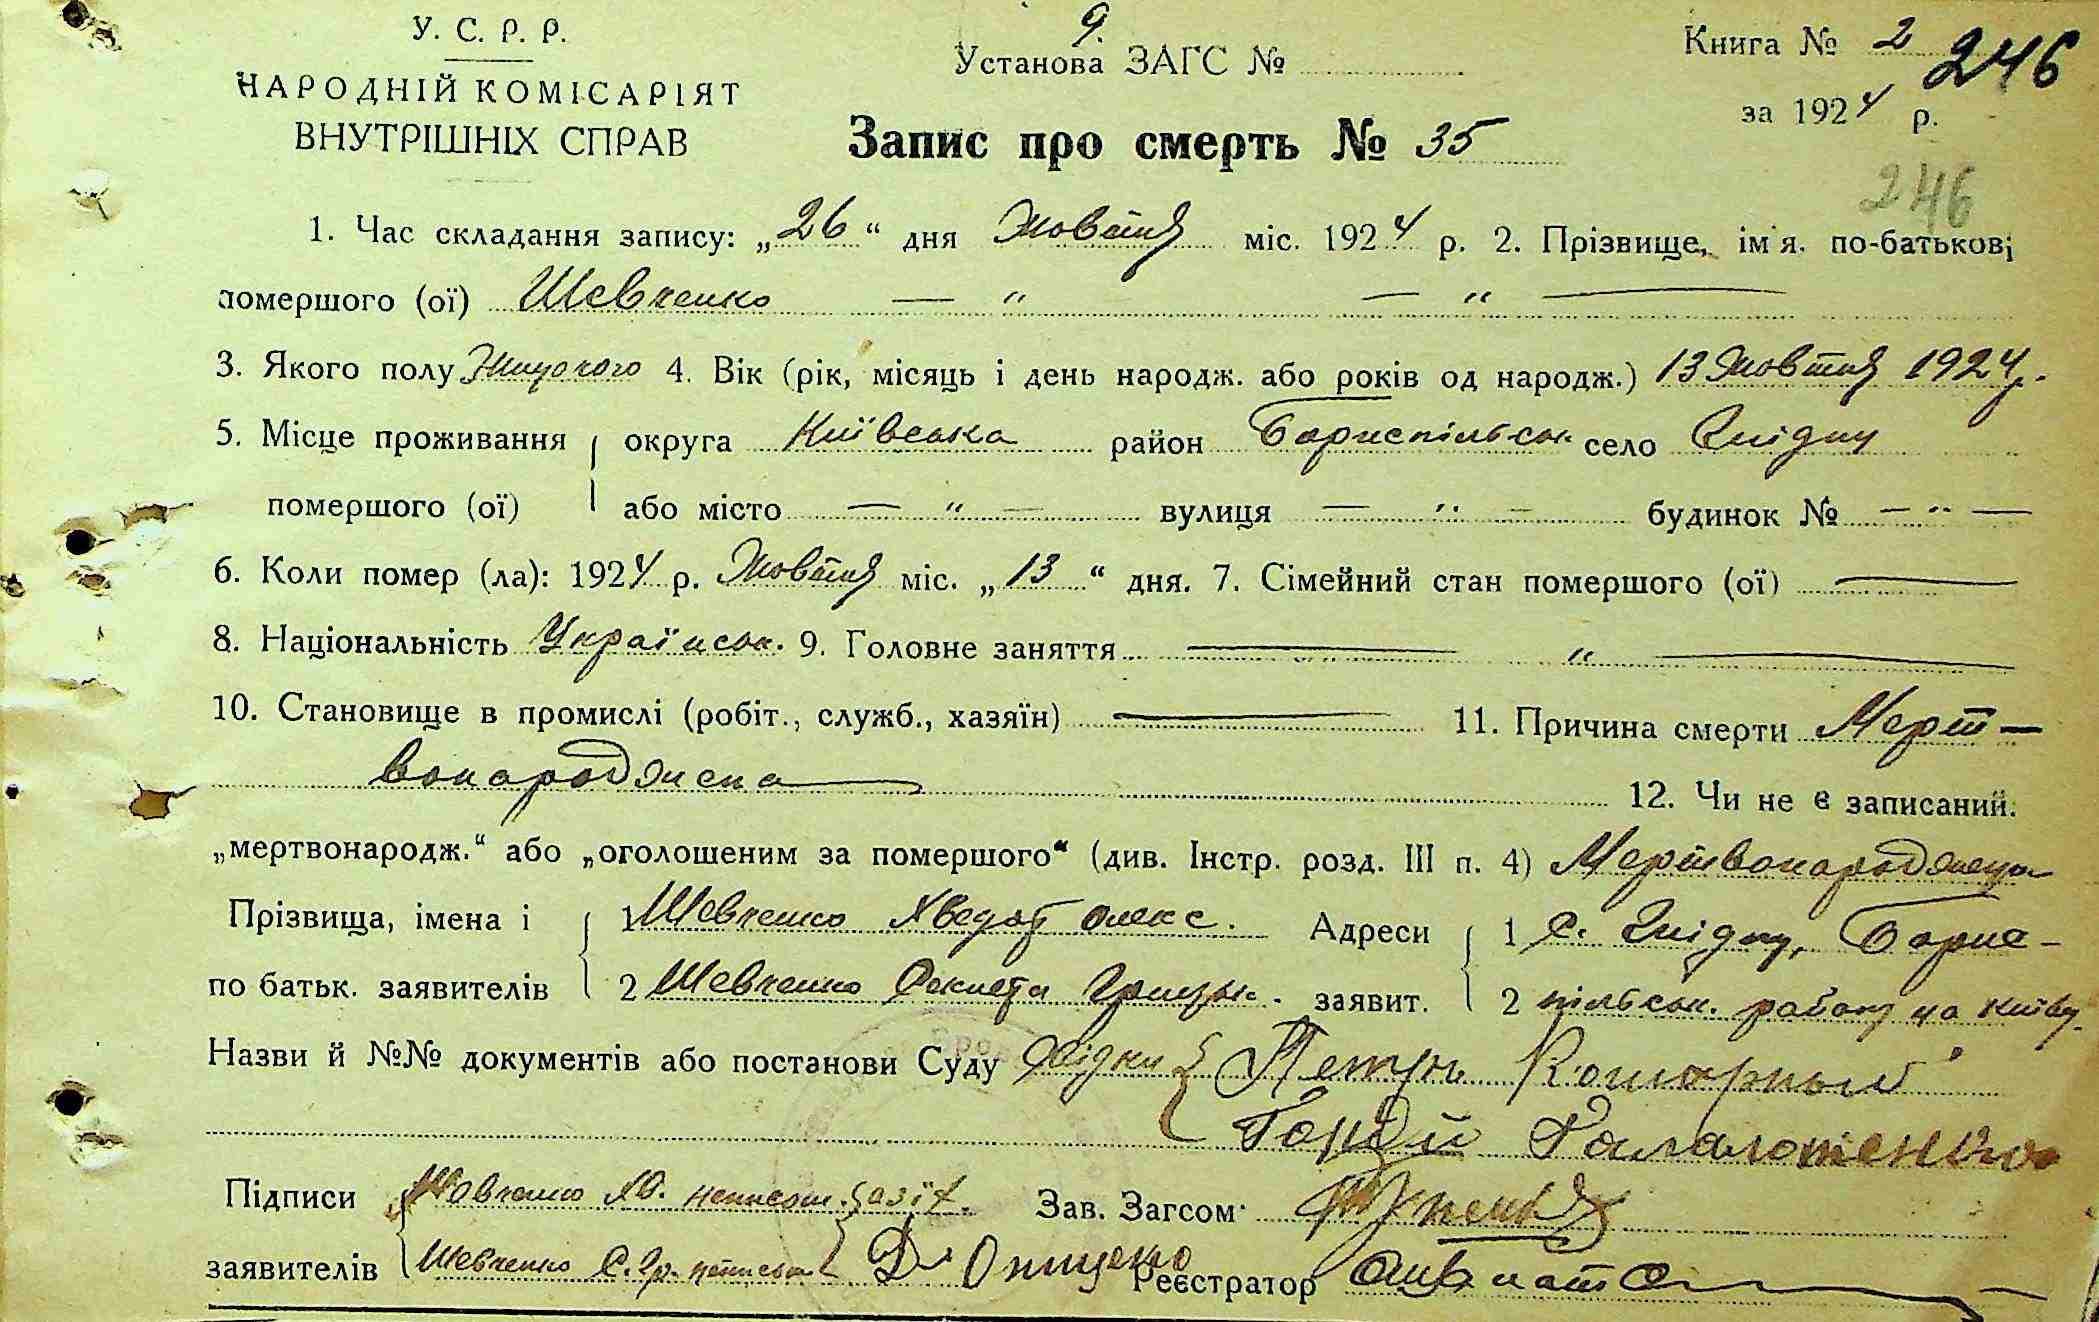 У. С. Р. Р.
НАРОДНІЙ КОМІСАРІЯТ
ВНУТРІШНІХ СПРАВ
9.
Установа ЗАГС №
Книга № 2 246
за 1924 р.
Запис про смерть № 35
246
1. Час складання запису: „26“ дня Жовтня міс. 1924 р. 2. Прізвище, ім'я. по-батькові
помершого (ої) Шевченко — „ — „ —
3. Якого полу Жіночого 4. Вік (рік, місяць і день народж. або років од народж.) 13 Жовтня 1924 р.
5. Місце проживання округа Київська район Бориспільськ село Гнідин
помершого (ої) або місто — „ — вулиця — „ — будинок № — „ —
6. Коли помер (ла): 1924 р. Жовтня міс. „13“ дня. 7. Сімейний стан помершого (ої) —
8. Національність Українськ. 9. Головне заняття — „ —
10. Становище в промислі (робіт., служб., хазяїн) — 11. Причина смерти Мерт-
вонароджена 12. Чи не є записаний.
„мертвонародж.“ або „оголошеним за помершого“ (див. Інстр. розд. III п. 4) Мертвонароджена
Прізвища, імена і 1 Шевченко Хведот Олекс. Адреси 1 С. Гнідин, Борис-
по батьк. заявителів 2 Шевченко Грицьк. заявит. 2 пільськ. району на Київщ.
Назви й №№ документів або постанови Суду Свідки Петро Кошарный
Гордій
Підписи Шевченко Хв. неписьм. за їх Зав. Загсом
заявителів Шевченко Гр. неписьм Д. Онищенко Реєстратор